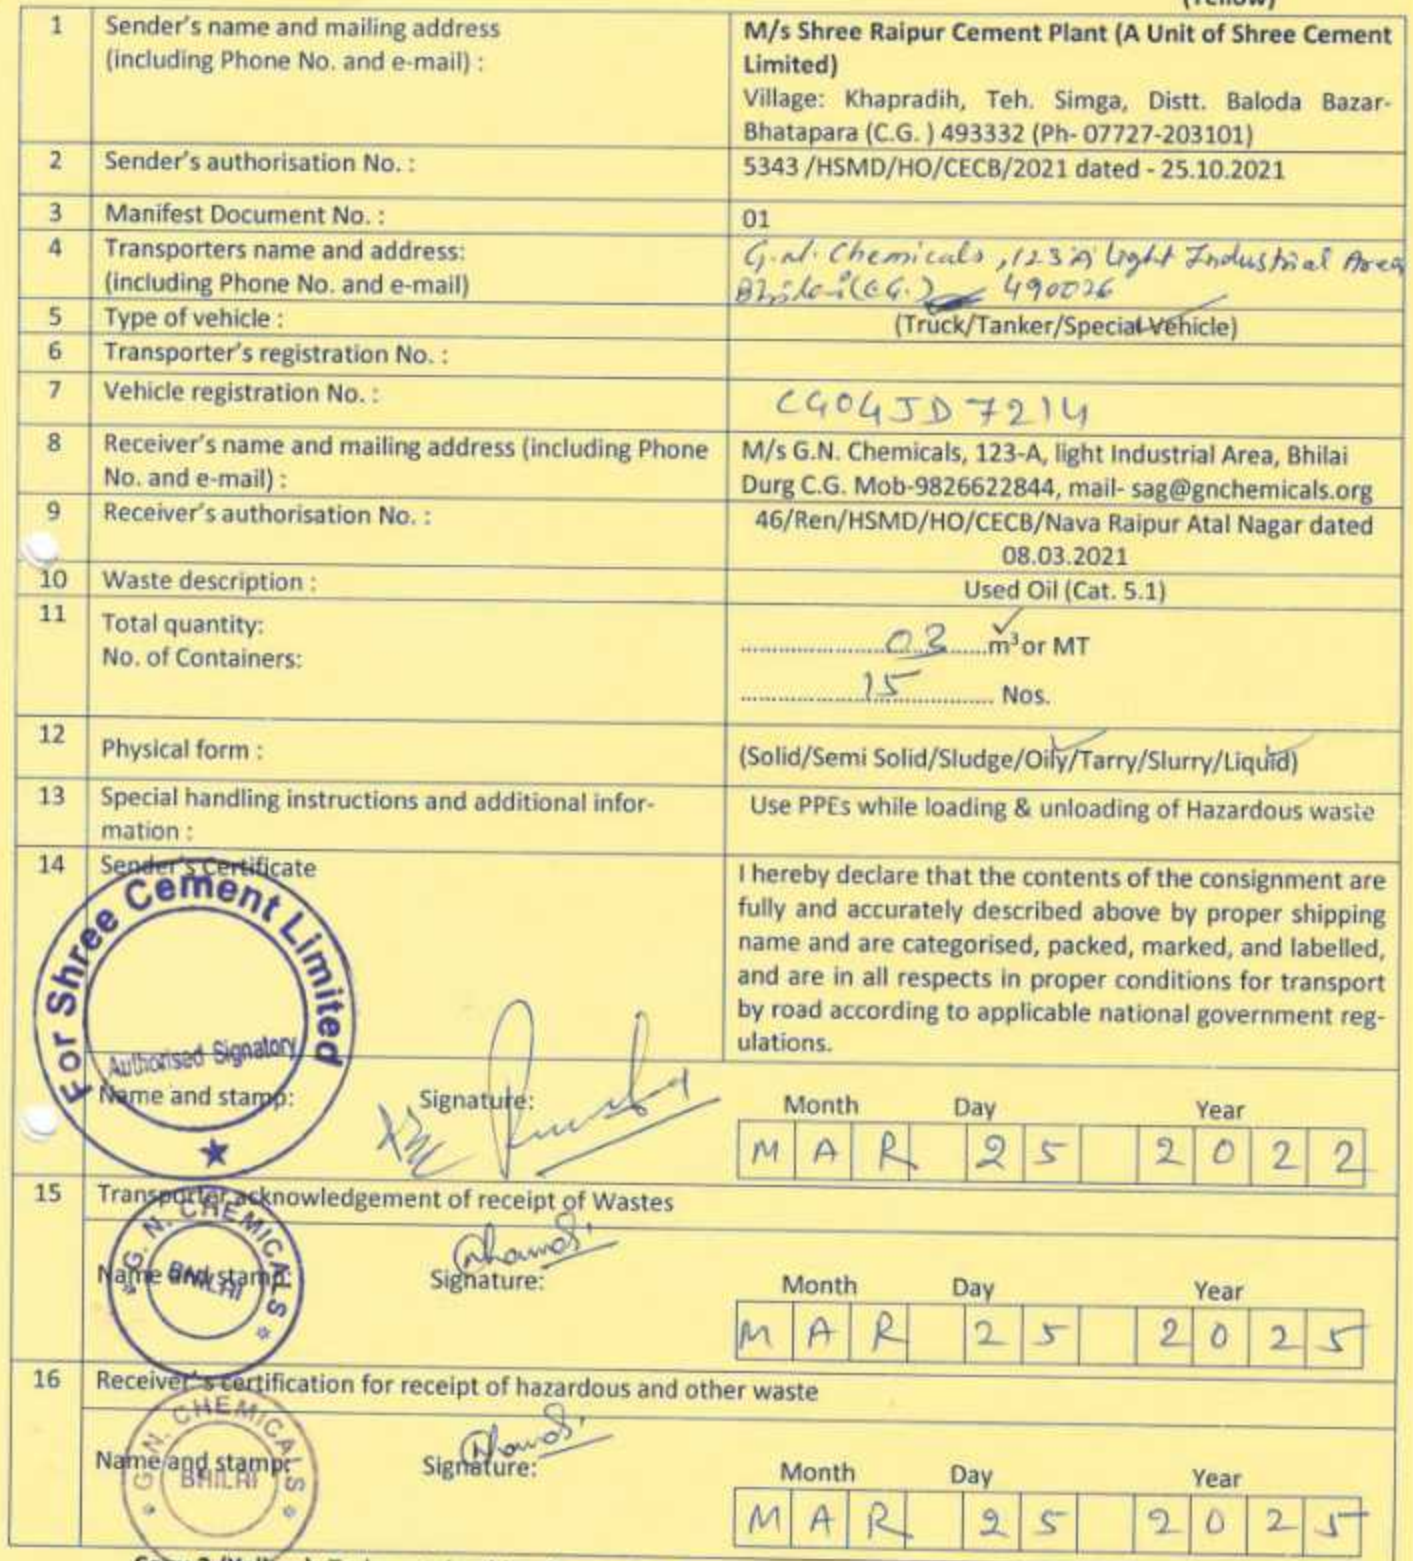 (Yellow)
1 Sender's name and mailing address
(including Phone No. and e-mail) :
M/s Shree Raipur Cement Plant (A Unit of Shree Cement
Limited)
Village: Khapradih, Teh. Simga, Distt. Baloda Bazar-
Bhatapara (C.G. ) 493332 (Ph- 07727-203101)
2 Sender's authorisation No. : 5343 /HSMD/HO/CECB/2021 dated - 25.10.2021
3 Manifest Document No. : 01
4 Transporters name and address:
(including Phone No. and e-mail)
G.N. Chemicals, 123 A Light Industrial Area
Bhilai (C.G.) 490026
5 Type of vehicle : (Truck/Tanker/Special Vehicle)
6 Transporter's registration No. :
7 Vehicle registration No. : CG04JD7214
8 Receiver's name and mailing address (including Phone
No. and e-mail) :
M/s G.N. Chemicals, 123-A, light Industrial Area, Bhilai
Durg C.G. Mob-9826622844, mail- sag@gnchemicals.org
9 Receiver's authorisation No. :
46/Ren/HSMD/HO/CECB/Nava Raipur Atal Nagar dated
08.03.2021
10 Waste description : Used Oil (Cat. 5.1)
11 Total quantity: ........03........m³ or MT
No. of Containers: ........15........ Nos.
12 Physical form : (Solid/Semi Solid/Sludge/Oily/Tarry/Slurry/Liquid)
13 Special handling instructions and additional infor-
mation :
Use PPEs while loading & unloading of Hazardous waste
14 Sender's Certificate
I hereby declare that the contents of the consignment are
fully and accurately described above by proper shipping
name and are categorised, packed, marked, and labelled,
and are in all respects in proper conditions for transport
by road according to applicable national government reg-
ulations.
For Shree Cement Limited
Authorised Signatory
Name and stamp: Signature: Month Day Year
MAR 25 2022
15 Transporter acknowledgement of receipt of Wastes
G. N. CHEMICALS
BHILAI
Name and stamp: Signature: Month Day Year
MAR 25 2025
16 Receiver's certification for receipt of hazardous and other waste
G. N. CHEMICALS
BHILAI
Name and stamp: Signature: Month Day Year
MAR 25 2025